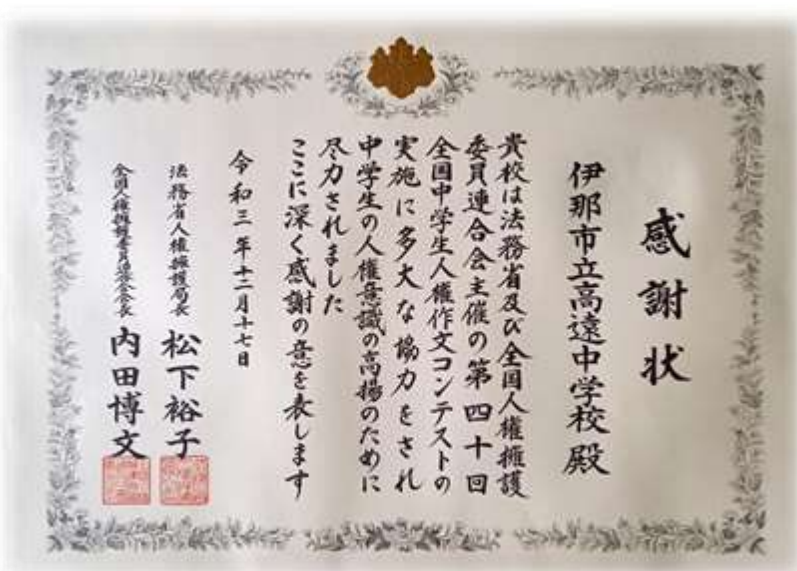 感謝状
伊那市立高遠中学校殿
貴校は法務省及び全国人権擁護
委員連合会主催の第四十回
全国中学生人権作文コンテストの
実施に多大な協力をされ
中学生の人権意識の高揚のために
尽力されました
ここに深く感謝の意を表します
令和三年十二月十七日
法務省人権擁護局長 松下裕子
全国人権擁護委員連合会会長 内田博文